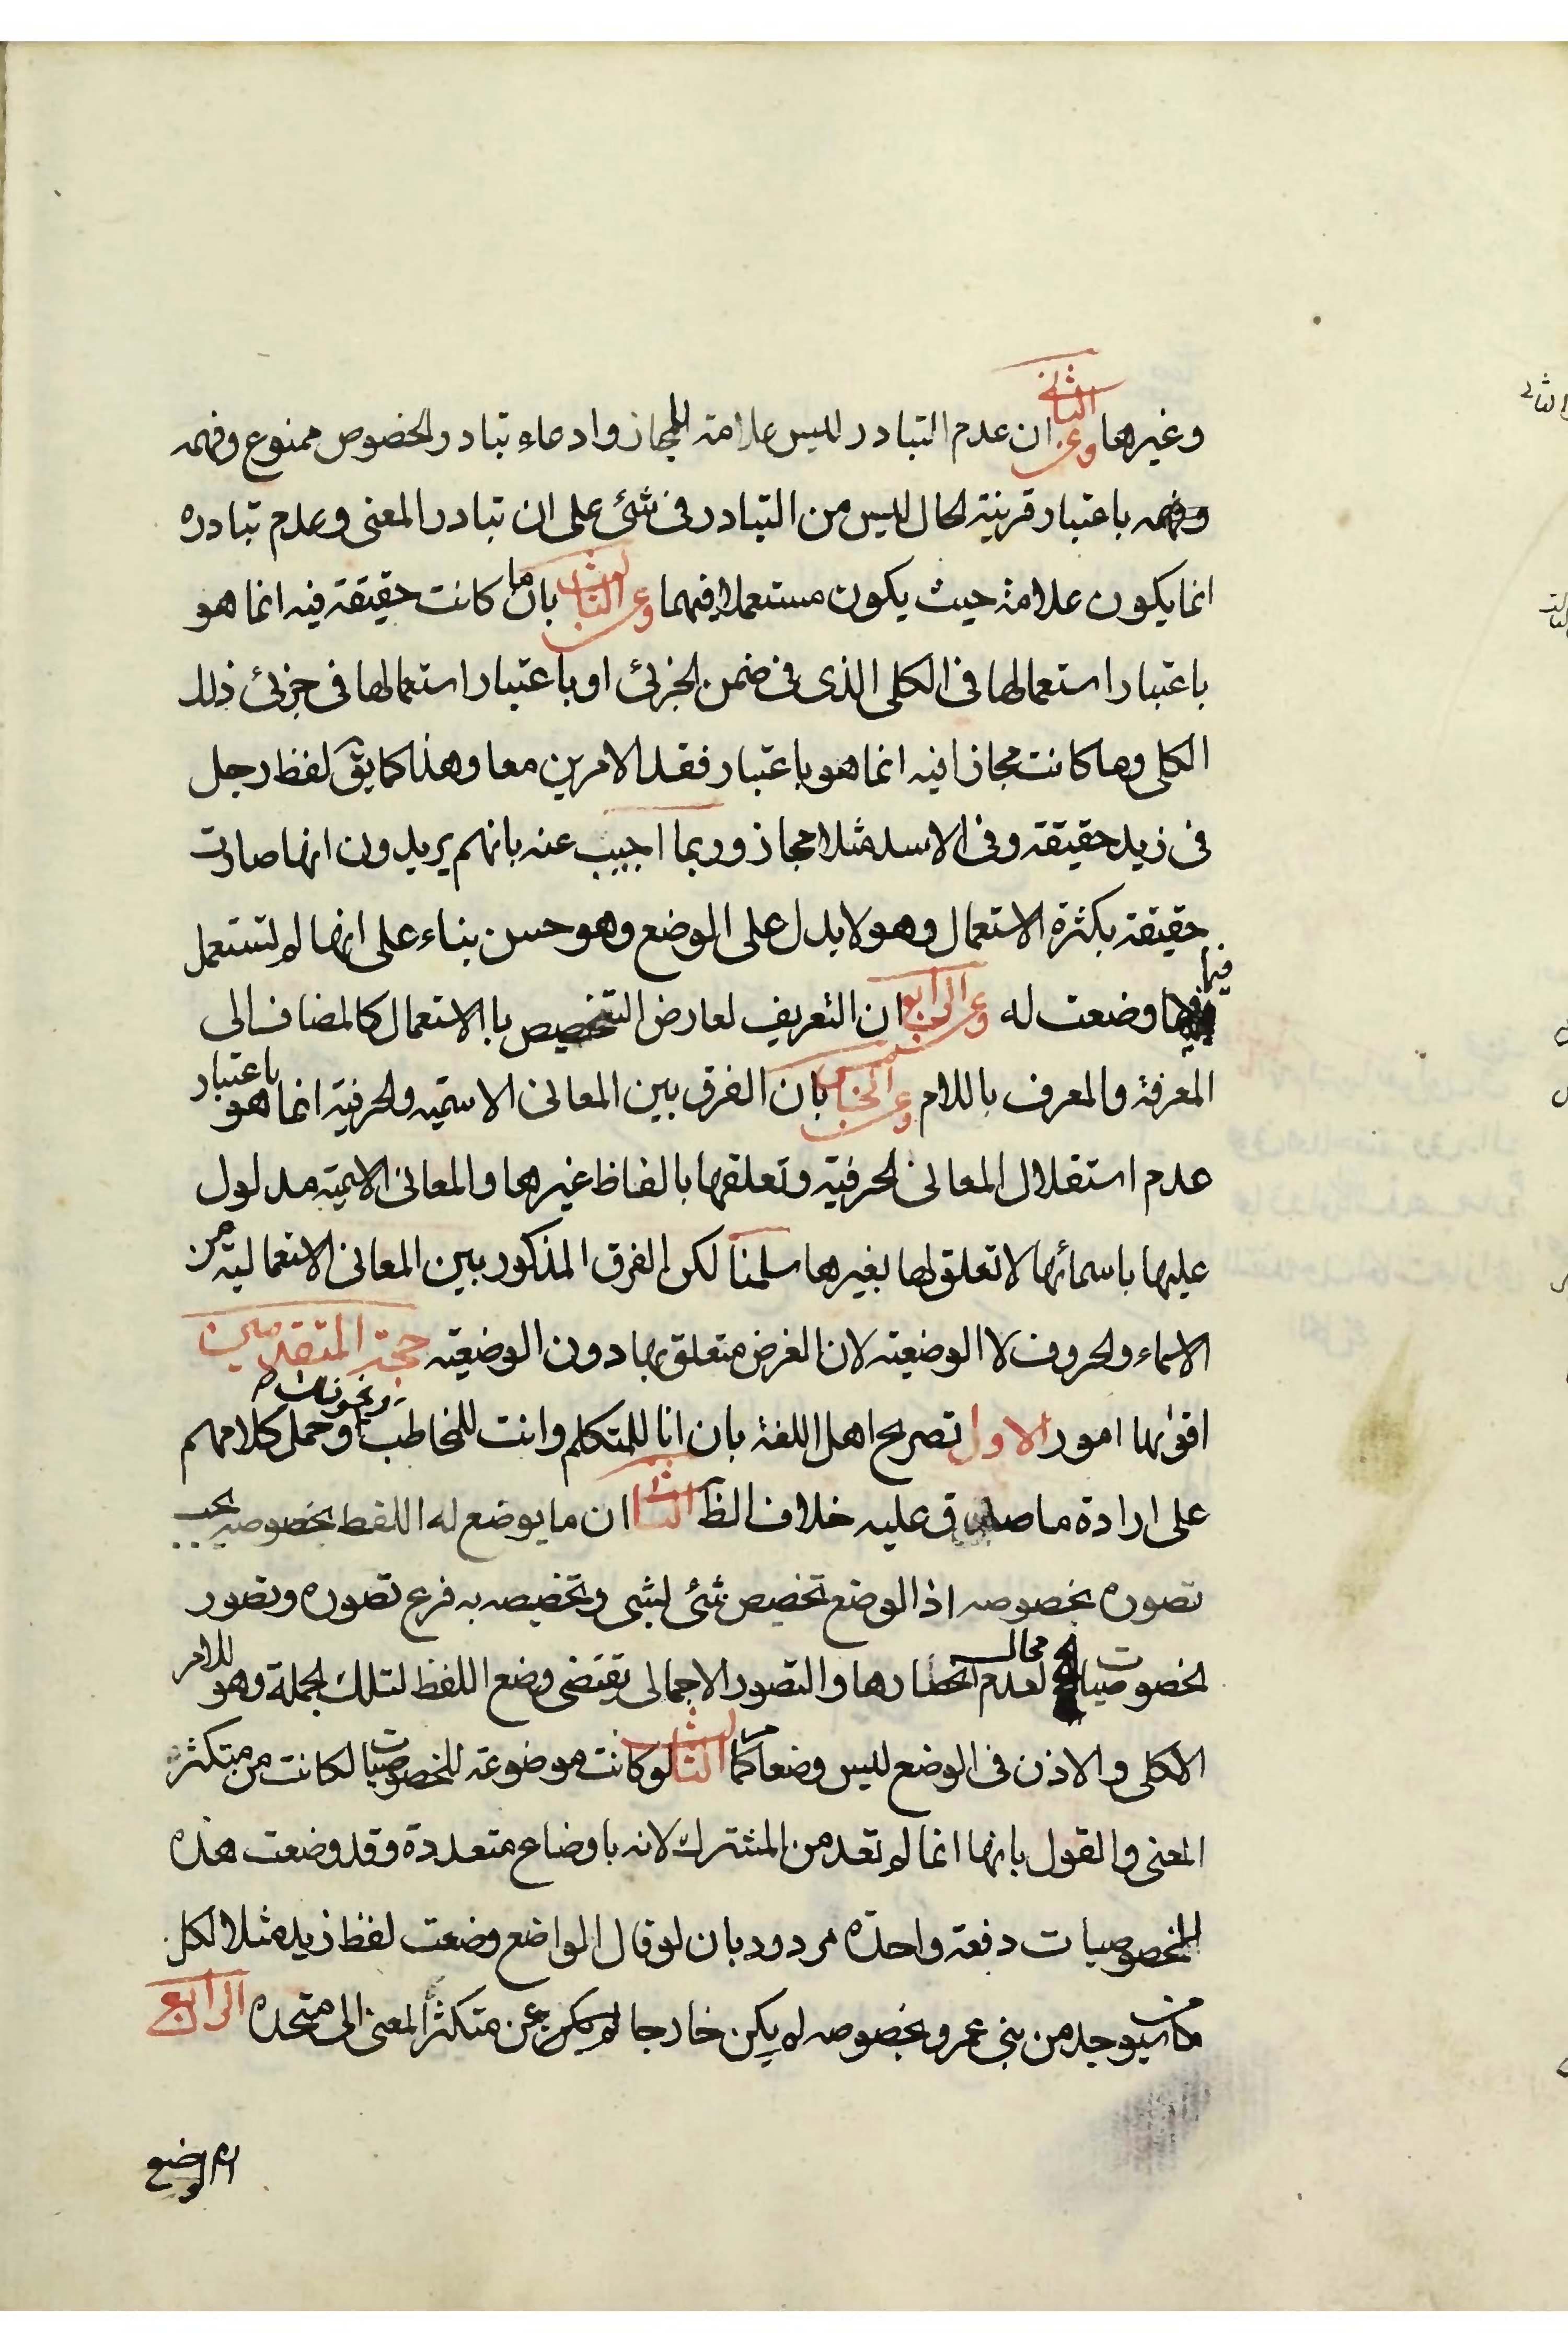 وغيرها وعن الثانى ان عدم التبادر ليس علامة للمجاز وادعاء تبادر الخصوص ممنوع وفهمه
وفهمه باعتبار قرينة الحال ليس من التبادر فى شئ على ان تبادر المعنى وعدم تبادره
انما يكون علامة حيث يكون مستعملا فيهما وعن الثالث بان ما كانت حقيقة فيه انما هو
باعتبار استعمالها فى الكلى الذى فى ضمن الجزئ او باعتبار استعمالها فى جزئ ذلك
الكلى وما كانت مجازا فيه انما هو باعتبار فقد الامرين معا وهذا كما يق لفظ رجل
فى زيد حقيقة وفى الاسد مثلا مجاز وربما اجيب عنه بانهم يريدون انها صارت
حقيقة بكثرة الاستعمال وهو لا يدل على الوضع وهو حسن بناء على انها لم تستعمل
فيما وضعت له وعن الرابع ان التعريف لعارض التخصيص بالاستعمال كالمضاف الى
المعرفة والمعرف باللام وعن الخامس بان الفرق بين المعانى الاسمية والحرفية انما هو باعتبار
عدم استقلال المعانى الحرفية وتعلقها بالفاظ غيرها والمعانى الاسمية مدلول
عليها باسمائها لا تعلق لها بغيرها سلمنا لكن الفرق المذكور بين المعانى الاستعمالية من
الاسماء والحروف لا الوضعية لان الغرض متعلق بها دون الوضعية حجة المتقدمين
اقواها امور الاول تصريح اهل اللغة بان انا للمتكلم وانت للمخاطب ونحو ذلك وحمل كلامهم
على ارادة ما صدق عليه خلاف الظ الثانى ان ما يوضع له اللفظ بخصوصه يجب
تصوره بخصوصه اذ الوضع تخصيص شئ لشى وتخصيصه به فرع تصوره وتصور
الخصوصيات محال لعدم انحصارها والتصور الاجمالى يقتضى وضع اللفظ لتلك الجملة وهو للامر
الكلى والاذن فى الوضع ليس وضعا كما مر الثالث لو كانت موضوعة للخصوصيات لكانت من متكثر
المعنى والقول بانها انما لم تعد من المشترك لانه باوضاع متعددة وقد وضعت هذه
الخصوصيات دفعة واحدة مردود بان لو قال الواضع وضعت لفظ زيد مثلا لكل
من سيوجد من بنى عمرو بخصوصه لم يكن خارجا عن متكثر المعنى الى متحده الرابع
الوضع